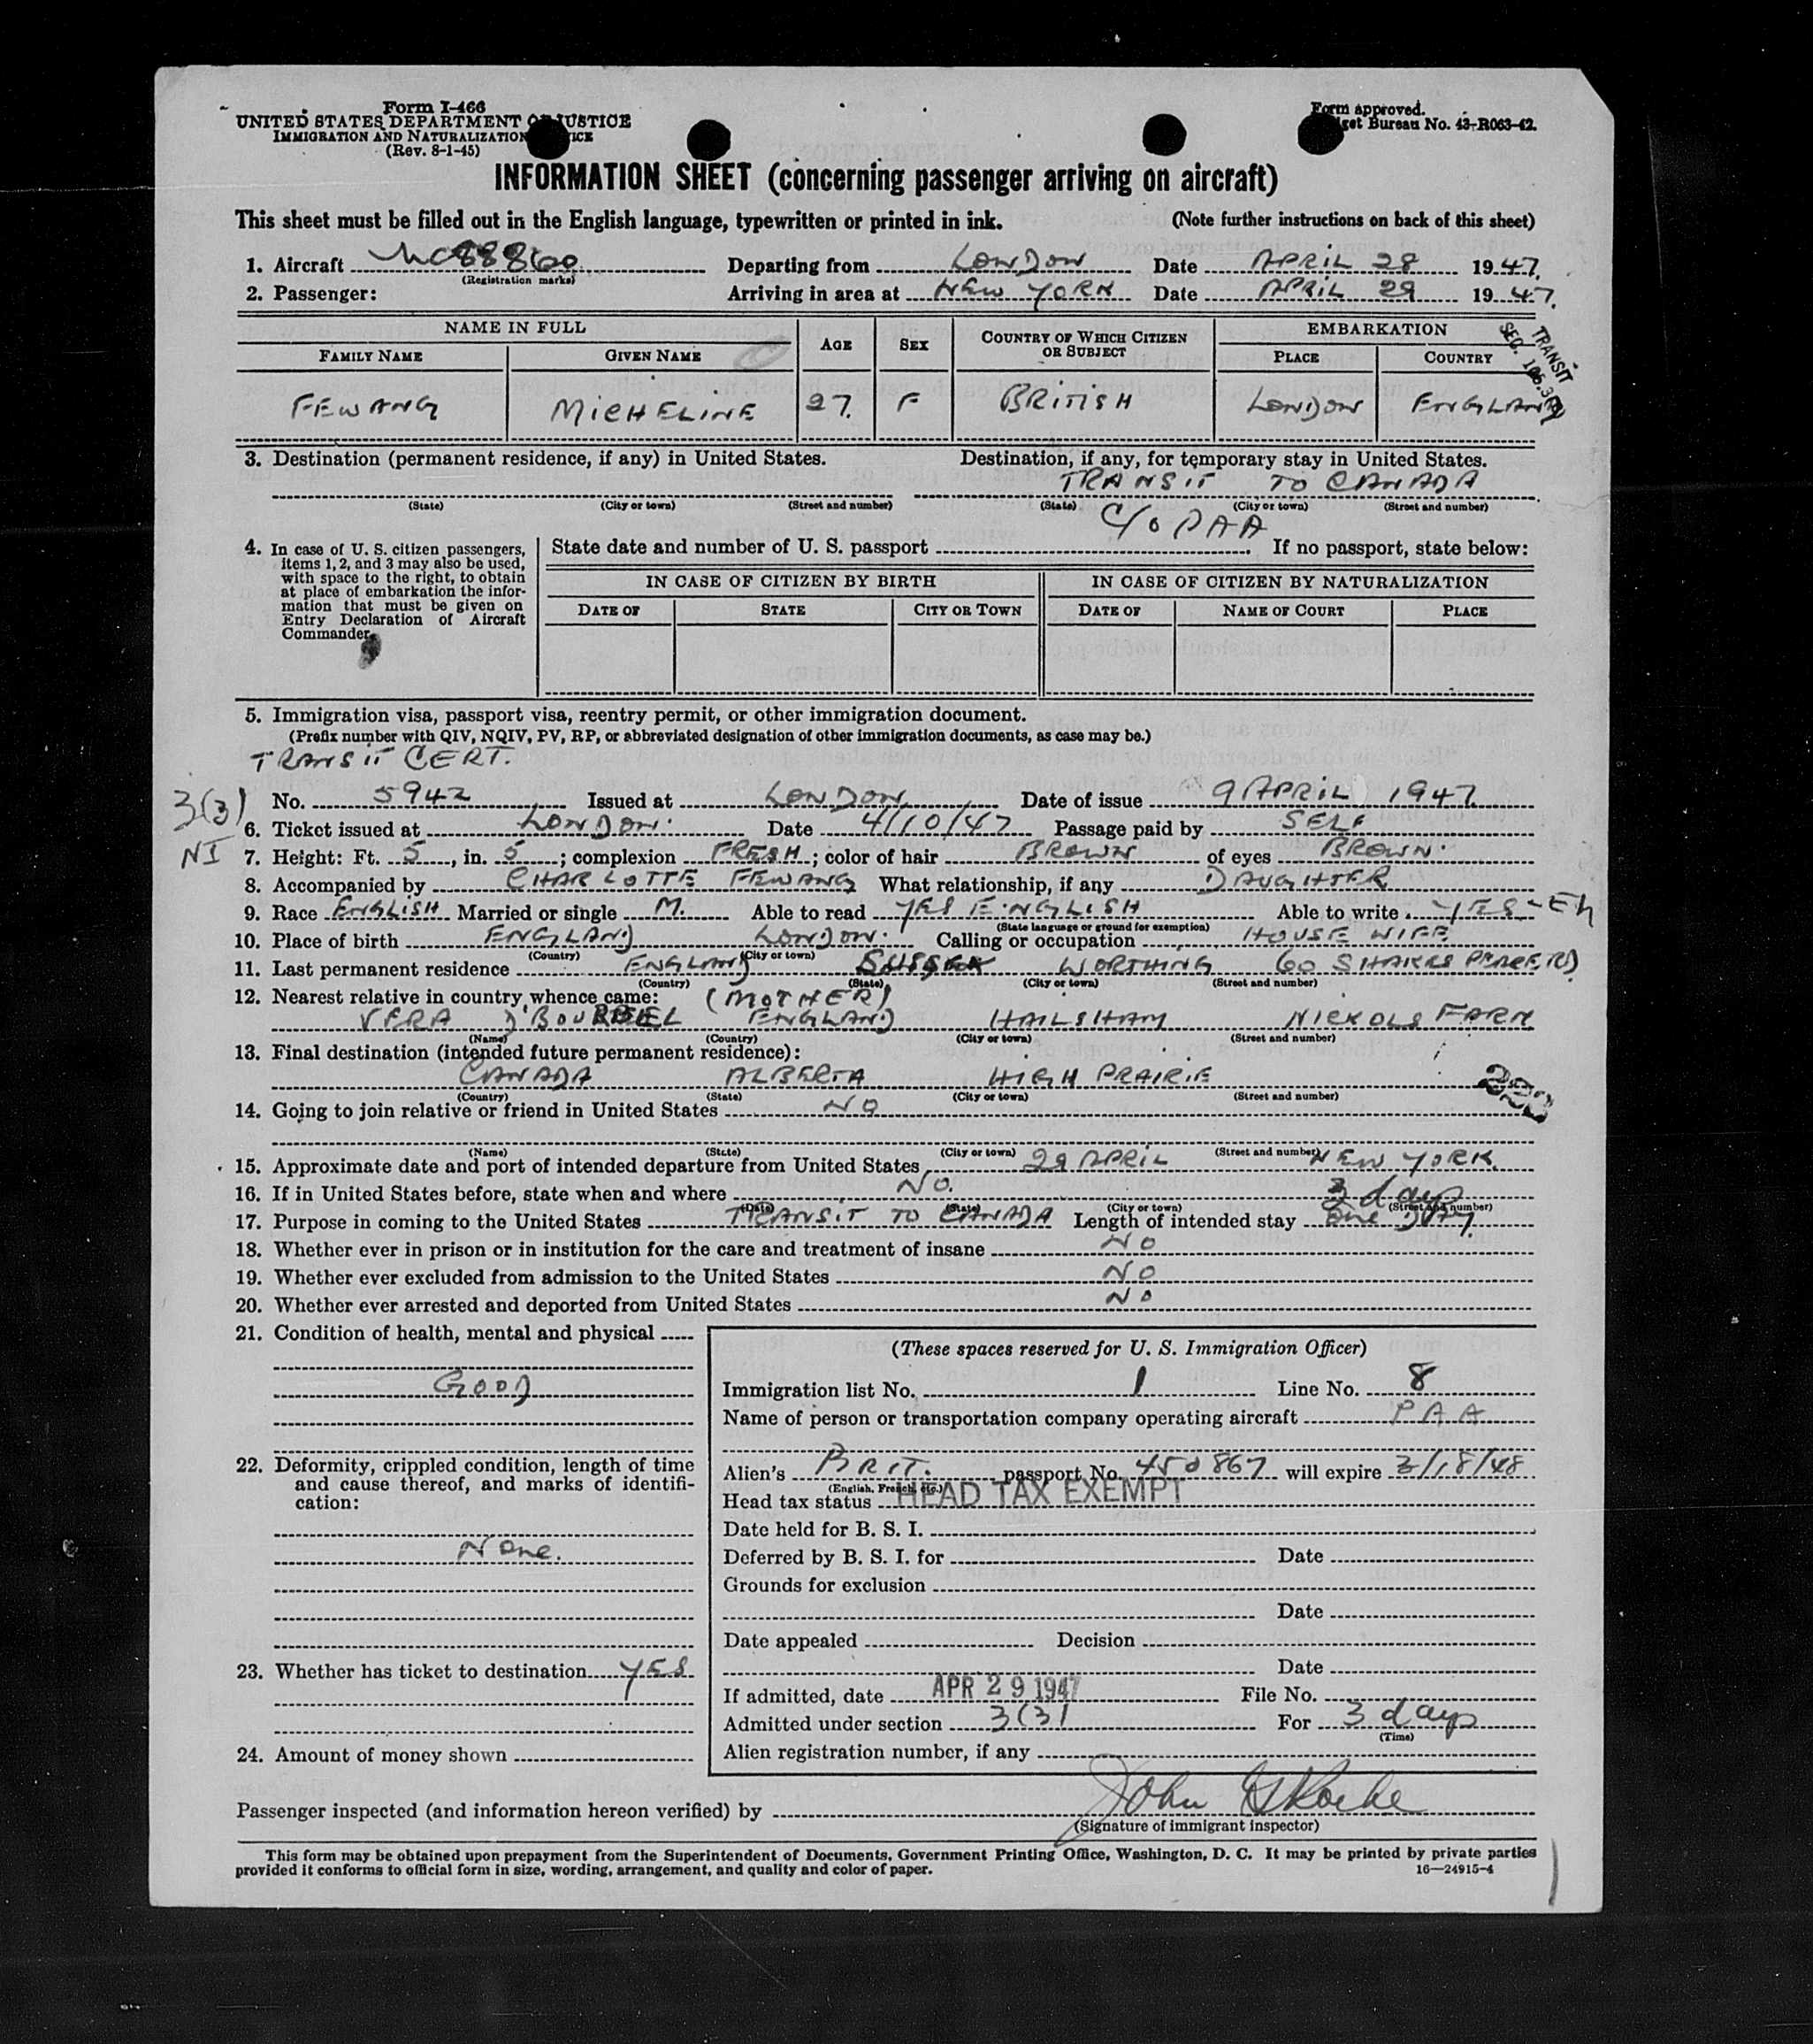 Form I-466
UNITED STATES DEPARTMENT OF JUSTICE
IMMIGRATION AND NATURALIZATION
(Rev. 8-1-45)
Form approved.
Bureau No. 43-R063-42.
INFORMATION SHEET (concerning passenger arriving on aircraft)
This sheet must be filled out in the English language, typewritten or printed in ink. (Note further instructions on back of this sheet)
1. Aircraft NC88860 Departing from LONDON Date APRIL 28 1947.
(Registration marks)
2. Passenger: Arriving in area at NEW YORK Date APRIL 29 1947.
TRANSIT
NAME IN FULL AGE SEX COUNTRY OF WHICH CITIZEN OR SUBJECT EMBARKATION
FAMILY NAME GIVEN NAME PLACE COUNTRY
FEWANG MICHELINE 27. F BRITISH LONDON ENGLAND
3. Destination (permanent residence, if any) in United States. Destination, if any, for temporary stay in United States.
TRANSIT TO CANADA
(State) (City or town) (Street and number) (State) (City or town) (Street and number)
C/O PAA
4. In case of U. S. citizen passengers, items 1, 2, and 3 may also be used, with space to the right, to obtain at place of embarkation the information that must be given on Entry Declaration of Aircraft Commander.
State date and number of U. S. passport. If no passport, state below:
IN CASE OF CITIZEN BY BIRTH IN CASE OF CITIZEN BY NATURALIZATION
DATE OF STATE CITY OR TOWN DATE OF NAME OF COURT PLACE
5. Immigration visa, passport visa, reentry permit, or other immigration document.
(Prefix number with QIV, NQIV, PV, RP, or abbreviated designation of other immigration documents, as case may be.)
TRANSIT CERT.
3(3) No. 5942 Issued at LONDON Date of issue 9 APRIL 1947
6. Ticket issued at LONDON. Date 4/10/47 Passage paid by SELF
NI 7. Height: Ft. 5, in. 5; complexion FRESH; color of hair BROWN of eyes BROWN.
8. Accompanied by CHARLOTTE FEWANG What relationship, if any DAUGHTER
9. Race ENGLISH Married or single M. Able to read YES ENGLISH Able to write YES-EN
(State language or ground for exemption)
10. Place of birth ENGLAND LONDON. Calling or occupation HOUSE WIFE
(Country) (City or town)
11. Last permanent residence ENGLAND SUSSEX WORTHING 60 SHAKESPEARE RD
(Country) (State) (City or town) (Street and number)
12. Nearest relative in country whence came: (MOTHER)
VERA ENGLAND HAILSHAM NICKOLS FARM
(Name) (Country) (City or town) (Street and number)
13. Final destination (intended future permanent residence):
CANADA ALBERTA HIGH PRAIRIE
(Country) (State) (City or town) (Street and number)
14. Going to join relative or friend in United States NO
(Name) (State) (City or town) (Street and number)
15. Approximate date and port of intended departure from United States 29 APRIL NEW YORK.
16. If in United States before, state when and where NO.
(Date) (State) (City or town) (Street and number)
3 days
17. Purpose in coming to the United States TRANSIT TO CANADA Length of intended stay ONE DAY.
18. Whether ever in prison or in institution for the care and treatment of insane NO
19. Whether ever excluded from admission to the United States NO
20. Whether ever arrested and deported from United States NO
21. Condition of health, mental and physical
GOOD
22. Deformity, crippled condition, length of time and cause thereof, and marks of identification:
None.
23. Whether has ticket to destination YES
24. Amount of money shown
(These spaces reserved for U. S. Immigration Officer)
Immigration list No. 1 Line No. 8
Name of person or transportation company operating aircraft PAA
Alien's BRIT. passport No. 450867 will expire 3/18/48
(English, French, etc.)
Head tax status HEAD TAX EXEMPT
Date held for B. S. I.
Deferred by B. S. I. for Date
Grounds for exclusion
Date
Date appealed Decision
Date
If admitted, date APR 29 1947 File No.
Admitted under section 3(3) For 3 days
(Time)
Alien registration number, if any
Passenger inspected (and information hereon verified) by John
(Signature of immigrant inspector)
This form may be obtained upon prepayment from the Superintendent of Documents, Government Printing Office, Washington, D. C. It may be printed by private parties
provided it conforms to official form in size, wording, arrangement, and quality and color of paper. 16—24915-4